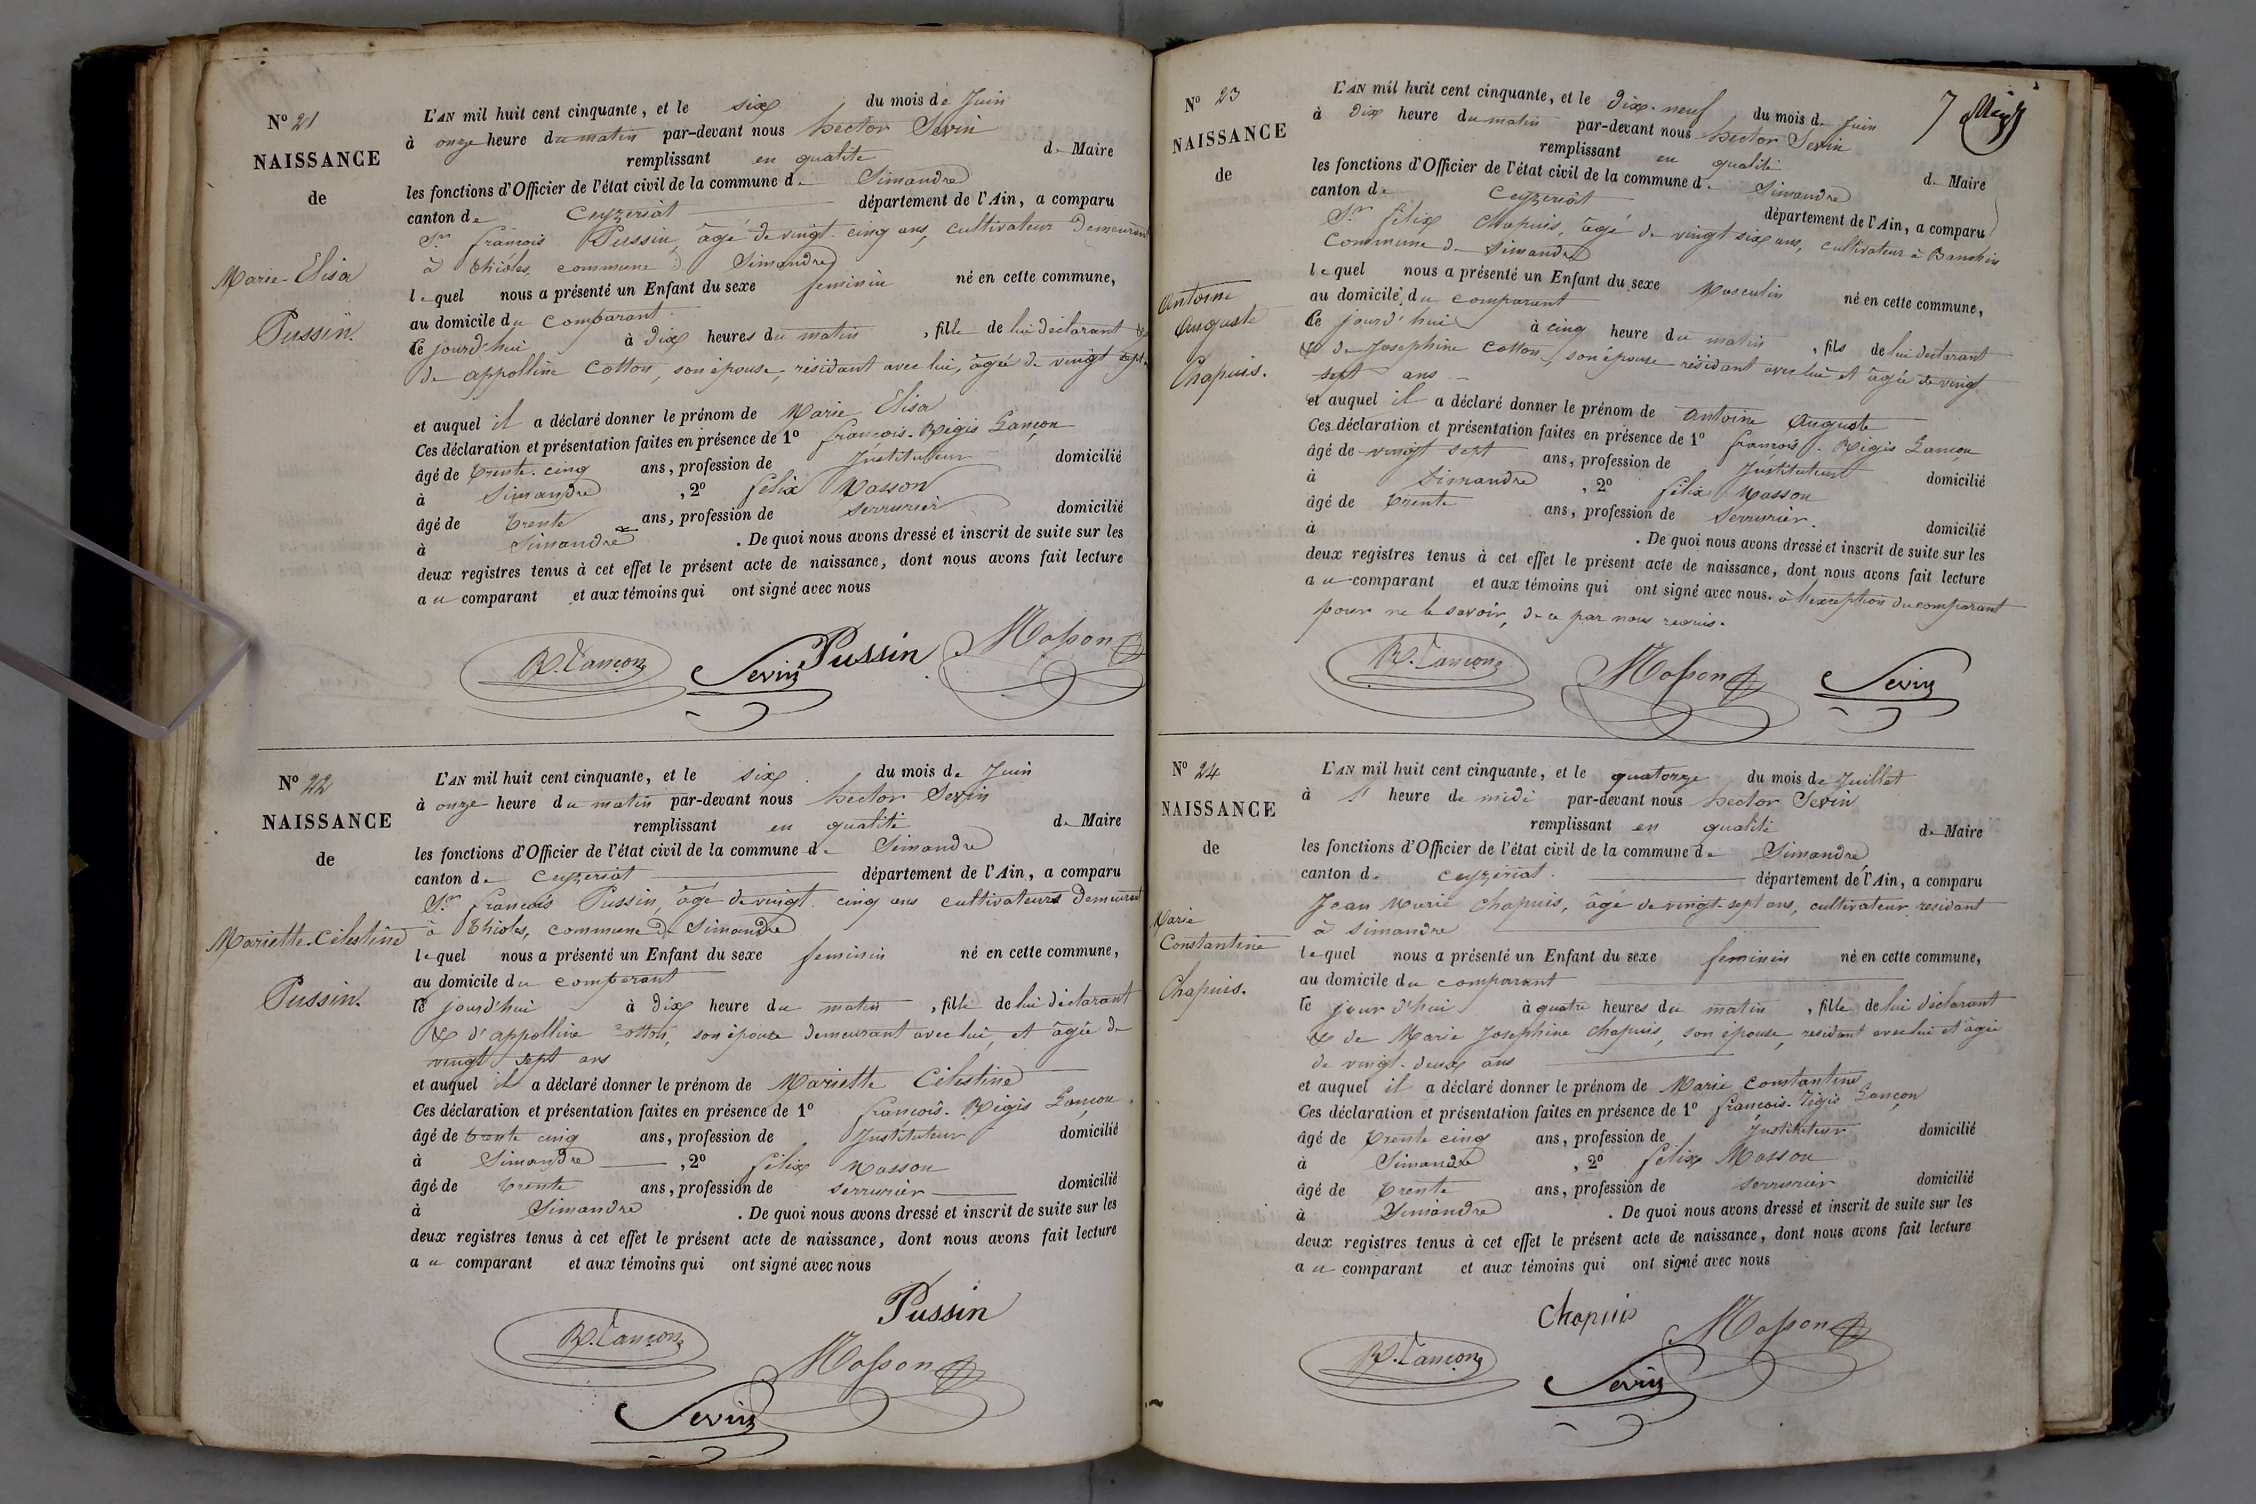 N° 21
NAISSANCE
de
Marie-Elisa
Pussin.
L'AN mil huit cent cinquante, et le six du mois de Juin
à onze heure du matin par-devant nous hector Sevin
remplissant en qualité de Maire
les fonctions d'Officier de l'état civil de la commune de Simandre
canton de Ceyzeriat département de l'Ain, a comparu
Sr. françois Pussin, âgé de vingt-cinq ans, cultivateur demeurant
à Thioles, commune de Simandre
lequel nous a présenté un Enfant du sexe feminin né en cette commune,
au domicile du comparant.
Ce jourd'hui à dix heures du matin, fille de lui déclarant &
de appolline Cotton, son épouse, résidant avec lui, âgée de vingt sept
et auquel il a déclaré donner le prénom de Marie Elisa
Ces déclaration et présentation faites en présence de 1° françois-Régis Lançon
âgé de trente-cinq ans, profession de Instituteur domicilié
à Simandre, 2° félix Masson
âgé de trente ans, profession de serrurier domicilié
à Simandre. De quoi nous avons dressé et inscrit de suite sur les
deux registres tenus à cet effet le présent acte de naissance, dont nous avons fait lecture
au comparant et aux témoins qui ont signé avec nous
R. Lançon Sevin Pussin Masson
N° 22
NAISSANCE
de
Mariette-Célestine
Pussin.
L'AN mil huit cent cinquante, et le six du mois de Juin
à onze heure du matin par-devant nous hector Sevin
remplissant en qualité de Maire
les fonctions d'Officier de l'état civil de la commune de Simandre
canton de Ceyzeriat département de l'Ain, a comparu
Sr. françois Pussin, âgé de vingt-cinq ans cultivateurs demeurant
à Thioles, commune de Simandre
lequel nous a présenté un Enfant du sexe feminin né en cette commune,
au domicile du comparant
le jourd'hui à dix heure du matin, fille de lui déclarant
& d'appolline Cotton, son épouse demeurant avec lui, et âgée de
vingt sept ans
et auquel il a déclaré donner le prénom de Mariette Célestine
Ces déclaration et présentation faites en présence de 1° françois-Régis Lançon.
âgé de trente cinq ans, profession de Instituteur domicilié
à Simandre, 2° félix Masson
âgé de trente ans, profession de serrurier domicilié
à Simandre. De quoi nous avons dressé et inscrit de suite sur les
deux registres tenus à cet effet le présent acte de naissance, dont nous avons fait lecture
au comparant et aux témoins qui ont signé avec nous
Pussin
R. Lançon Masson
Sevin
7
N° 23
NAISSANCE
de
Antoine
Auguste
Chapuis.
L'AN mil huit cent cinquante, et le dix-neuf du mois de Juin
à dix heure du matin par-devant nous hector Sevin
remplissant en qualité de Maire
les fonctions d'Officier de l'état civil de la commune de Simandre
canton de Ceyzeriat département de l'Ain, a comparu
Sr. félix Chapuis, âgé de vingt six ans, cultivateur à Banchin
Commune de Simandre
lequel nous a présenté un Enfant du sexe Masculin né en cette commune,
au domicile du comparant
Ce jourd'hui à cinq heure du matin, fils de lui déclarant
& de Josephine Cotton, son épouse résidant avec lui et âgée de vingt
sept ans
et auquel il a déclaré donner le prénom de Antoine Auguste
Ces déclaration et présentation faites en présence de 1° françois-Régis Lançon
âgé de vingt sept ans, profession de Instituteur domicilié
à Simandre, 2° félix Masson
âgé de trente ans, profession de Serrurier. domicilié
à. De quoi nous avons dressé et inscrit de suite sur les
deux registres tenus à cet effet le présent acte de naissance, dont nous avons fait lecture
au comparant et aux témoins qui ont signé avec nous. à l'exception du comparant
pour ne le savoir, de ce par nous requis.
R. Lançon Masson Sevin
N° 24
NAISSANCE
de
Marie
Constantine
Chapuis.
L'AN mil huit cent cinquante, et le quatorze du mois de Juillet
à l' heure de midi par-devant nous hector Sevin
remplissant en qualité de Maire
les fonctions d'Officier de l'état civil de la commune de Simandre
canton de Ceyzeriat. département de l'Ain, a comparu
Jean Marie Chapuis, âgé de vingt-sept ans, cultivateur résidant
à Simandre
lequel nous a présenté un Enfant du sexe feminin né en cette commune,
au domicile du comparant
le jour d'hui à quatre heures du matin, fille de lui déclarant
& de Marie Josephine Chapuis, son épouse, résidant avec lui et âgée
de vingt-deux ans
et auquel il a déclaré donner le prénom de Marie Constantine
Ces déclaration et présentation faites en présence de 1° françois-Régis Lançon
âgé de trente cinq ans, profession de Instituteur domicilié
à Simandre, 2° félix Masson
âgé de trente ans, profession de serrurier domicilié
à Simandre. De quoi nous avons dressé et inscrit de suite sur les
deux registres tenus à cet effet le présent acte de naissance, dont nous avons fait lecture
au comparant et aux témoins qui ont signé avec nous
Chapuis Masson
R. Lançon Sevin